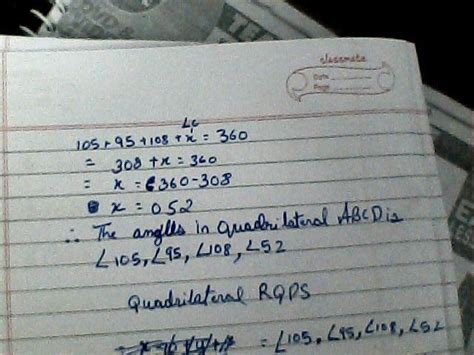 classmate
Date
Page
∠C
105 + 95 + 108 + x = 360
= 308 + x = 360
= x = 360-308
x = 052
∴ The anglles in Quadrilateral ABCD is
∠105, ∠95, ∠108, ∠52
Quadrilateral RQPS
= ∠105, ∠95, ∠108, ∠52